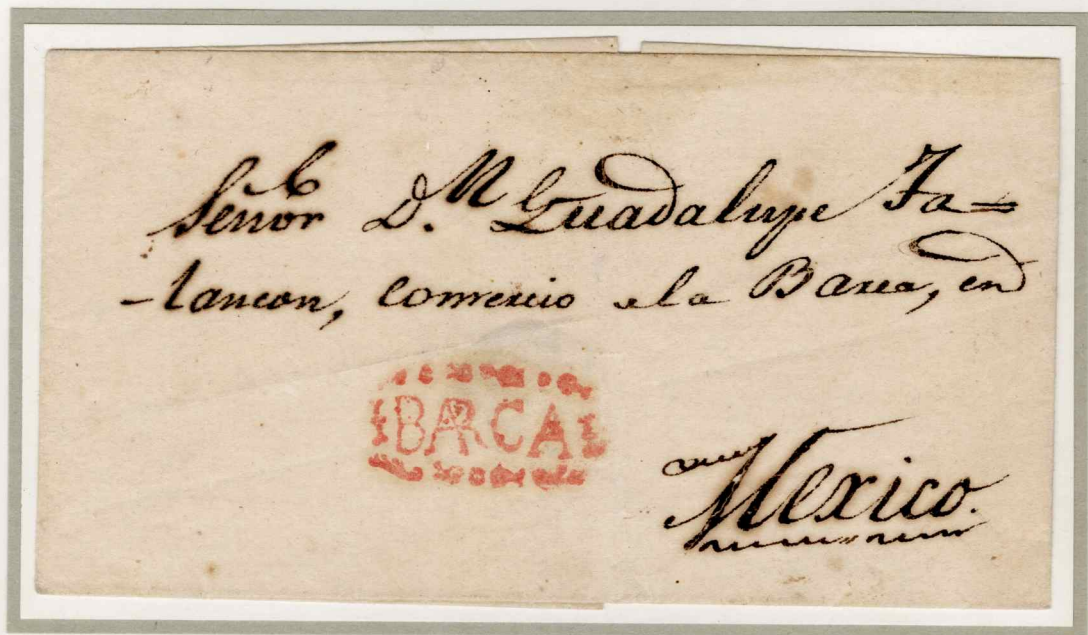 Señor D.n Guadalupe Ta=
-lancon, comercio de la Barca, en
BARCA
Mexico.